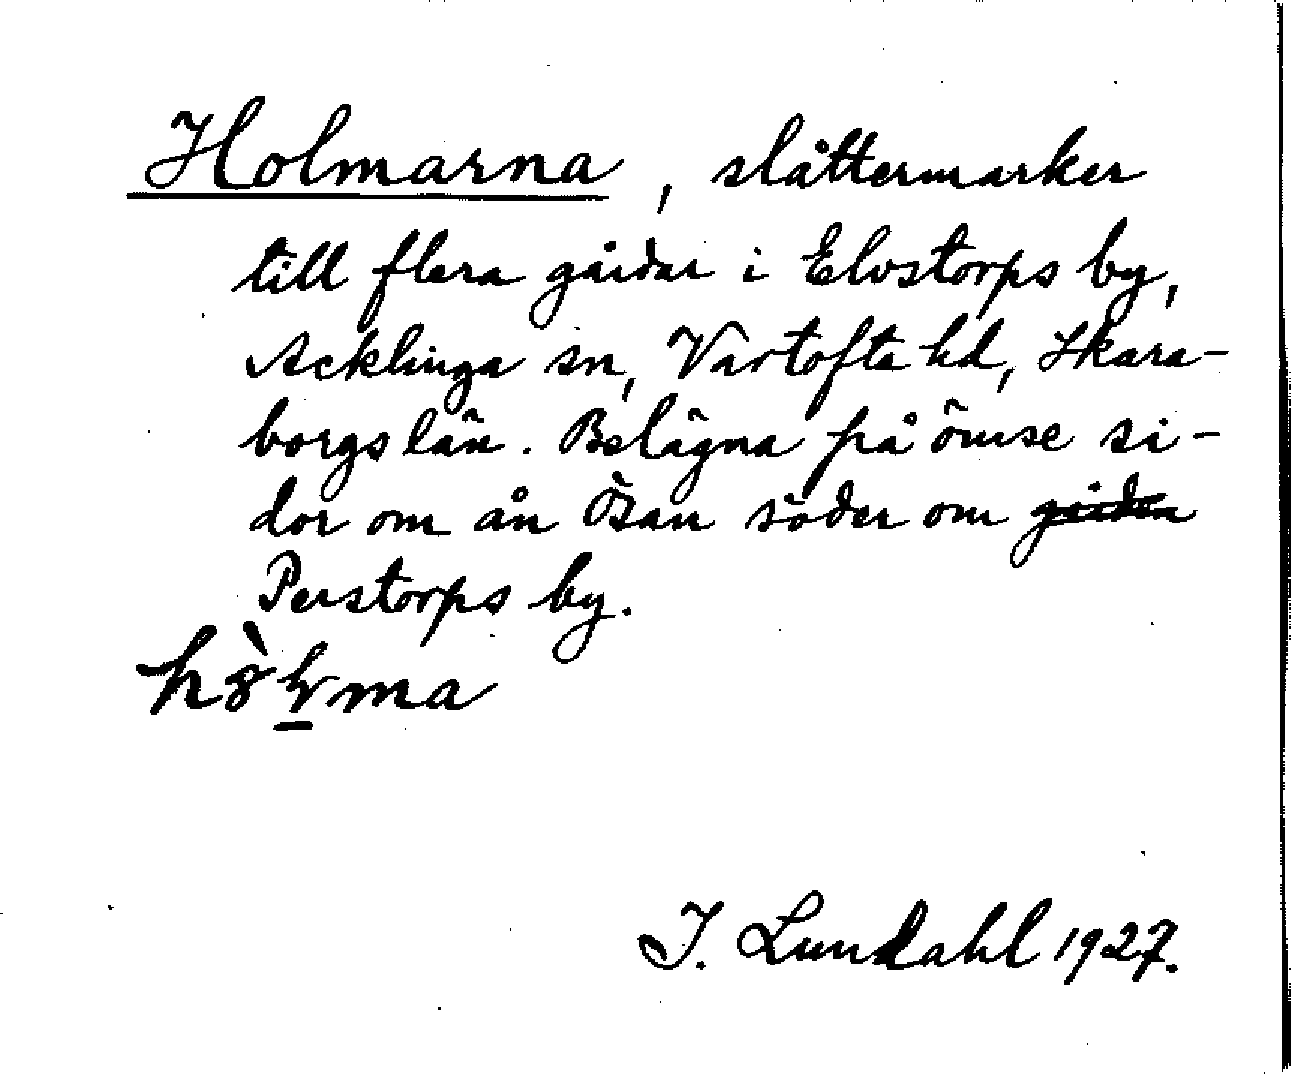 Holmarna, slåttermarker
till flera gårdar i Elvstorps by,
Acklinga sn, Vartofta hd, Skara-
borgs län. Belägna på ömse si-
dor om ån Ösan söder om gården
Perstorps by.
J. Lundahl 1927.